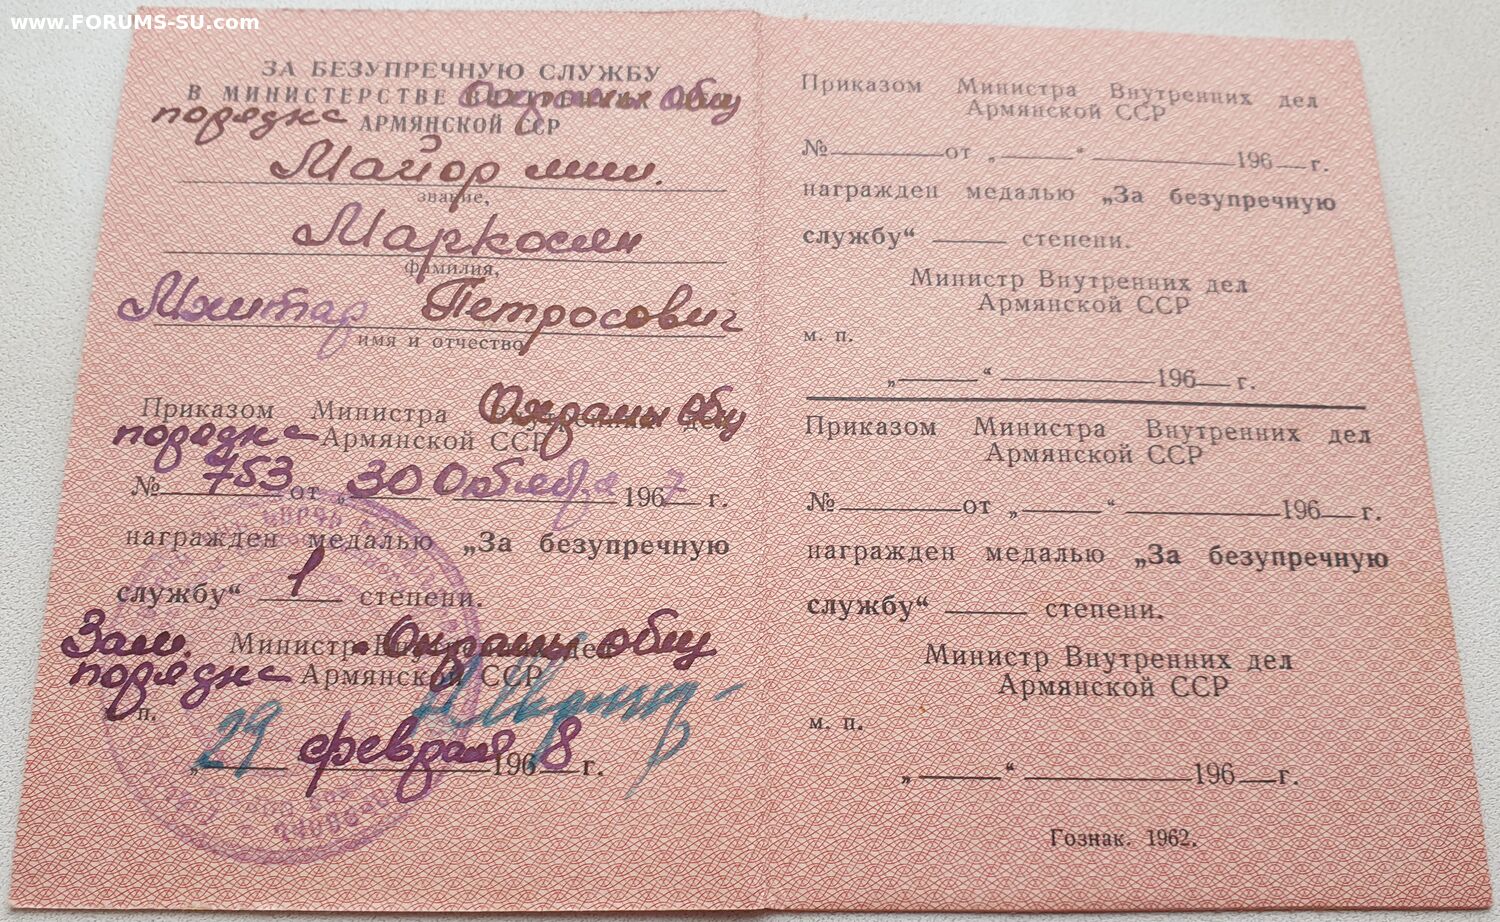 www.FORUMS-SU.com
ЗА БЕЗУПРЕЧНУЮ СЛУЖБУ
В МИНИСТЕРСТВЕ Охраны общ
порядка АРМЯНСКОЙ ССР
Майор мил.
звание,
Маркосян
фамилия,
Мхитар Петросович
имя и отчество
Приказом Министра Охраны общ
порядка Армянской ССР
№ 753 от „30 Октября 1967 г.
награжден медалью „За безупречную
службу“ 1 степени.
Зам. Министр Охраны общ
порядка Армянской ССР
п.
„29 февраля 1968 г.
Приказом Министра Внутренних дел
Армянской ССР
№ от „ “ 196 г.
награжден медалью „За безупречную
службу“ степени.
Министр Внутренних дел
Армянской ССР
м. п.
„ “ 196 г.
Приказом Министра Внутренних дел
Армянской ССР
№ от „ “ 196 г.
награжден медалью „За безупречную
службу“ степени.
Министр Внутренних дел
Армянской ССР
м. п.
„ “ 196 г.
Гознак. 1962.